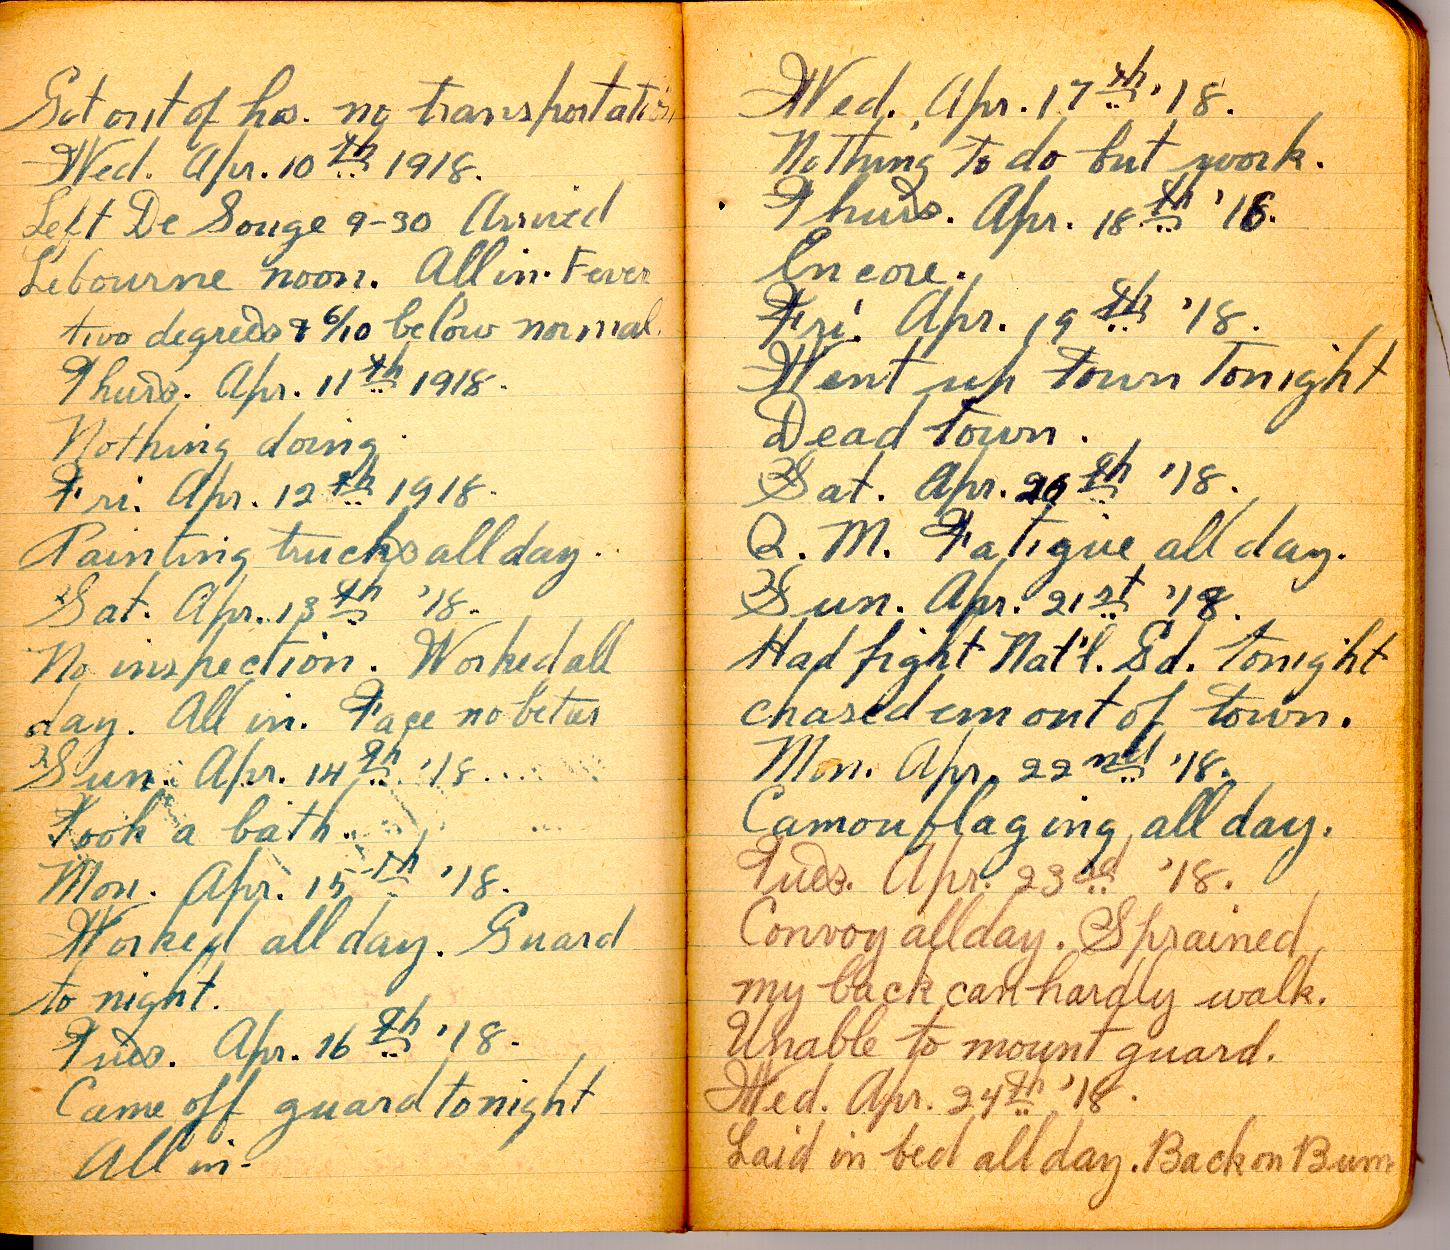 Got out of hos. no transportation
Wed. Apr. 10th 1918.
Left De Souge 9-30 Arrived
Lebourne noon. All in. Fever
two degrees & 6/10 below normal.
Thurs. Apr. 11th 1918.
Nothing doing.
Fri. Apr. 12th 1918.
Painting trucks all day.
Sat. Apr. 13th '18.
No inspection. Worked all
day. All in. Face no better
Sun. Apr. 14th '18
Took a bath.
Mon. Apr. 15th '18.
Worked all day. Guard
to night.
Tues. Apr. 16th '18.
Came off guard tonight
All in-
Wed. Apr. 17th '18.
Nothing to do but work.
Thurs. Apr. 18th '18.
Encore.
Fri. Apr. 19th '18.
Went up town tonight
Dead town.
Sat. Apr. 20th '18.
Q. M. Fatigue all day.
Sun. Apr. 21st '18.
Had fight Nat'l. Gd. tonight
chased em out of town.
Mon. Apr. 22nd '18.
Camouflaging all day.
Tues. Apr. 23rd '18.
Convoy all day. Sprained
my back can hardly walk.
Unable to mount guard.
Wed. Apr. 24th '18.
Laid in bed all day. Back on Bum